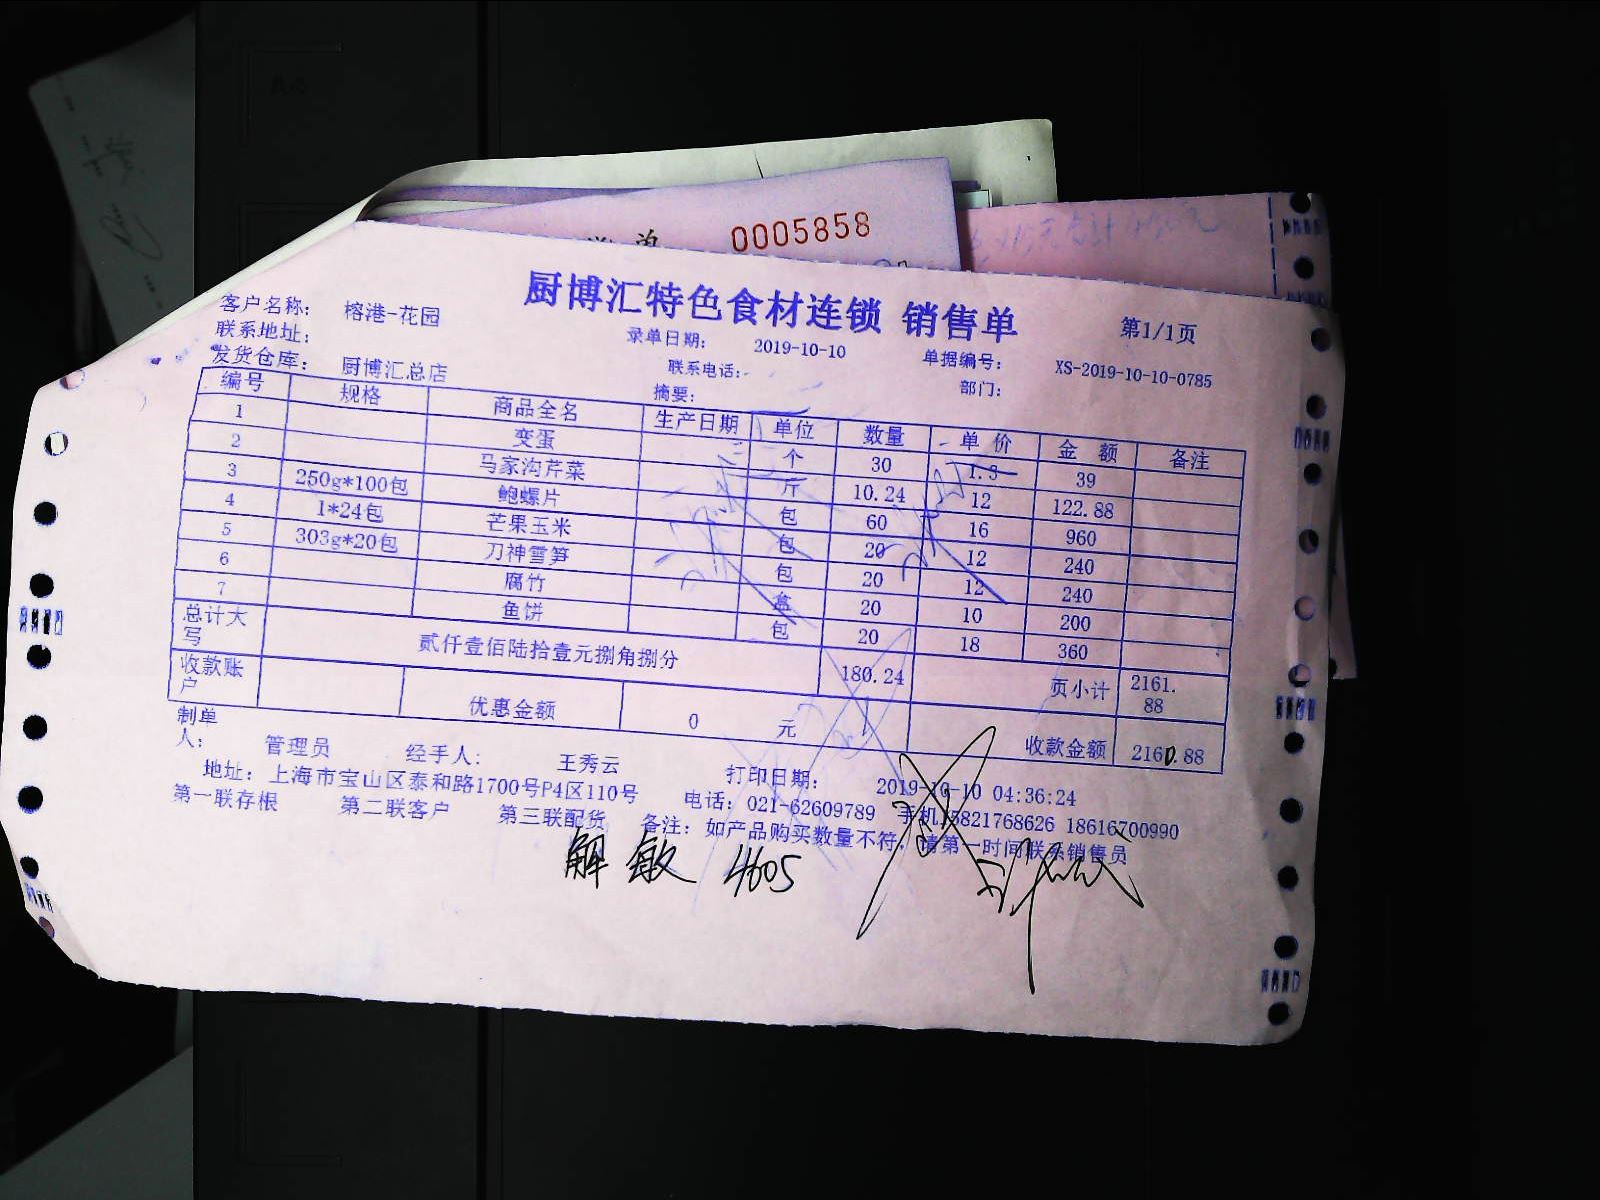 单
0005858
厨博汇特色食材连锁 销售单
第1/1页
客户名称： 榕港-花园
录单日期： 2019-10-10
单据编号： XS-2019-10-10-0785
联系地址：
联系电话：
部门：
发货仓库： 厨博汇总店
摘要：
编号 规格 商品全名 生产日期 单位 数量 单价 金额 备注
1 变蛋 个 30 1.3 39
2 马家沟芹菜 斤 10.24 12 122.88
3 250g*100包 鲍螺片 包 60 16 960
4 1*24包 芒果玉米 包 20 12 240
5 303g*20包 刀神雪笋 包 20 12 240
6 腐竹 盒 20 10 200
7 鱼饼 包 20 18 360
总计大写 贰仟壹佰陆拾壹元捌角捌分 180.24 页小计 2161.88
收款账户 优惠金额 0 元 收款金额 2160.88
制单人： 管理员 经手人： 王秀云 打印日期： 2019-10-10 04:36:24
地址：上海市宝山区泰和路1700号P4区110号 电话：021-62609789 手机15821768626 18616700990
第一联存根 第二联客户 第三联配货 备注：如产品购买数量不符，请第一时间联系销售员
解敏 4605